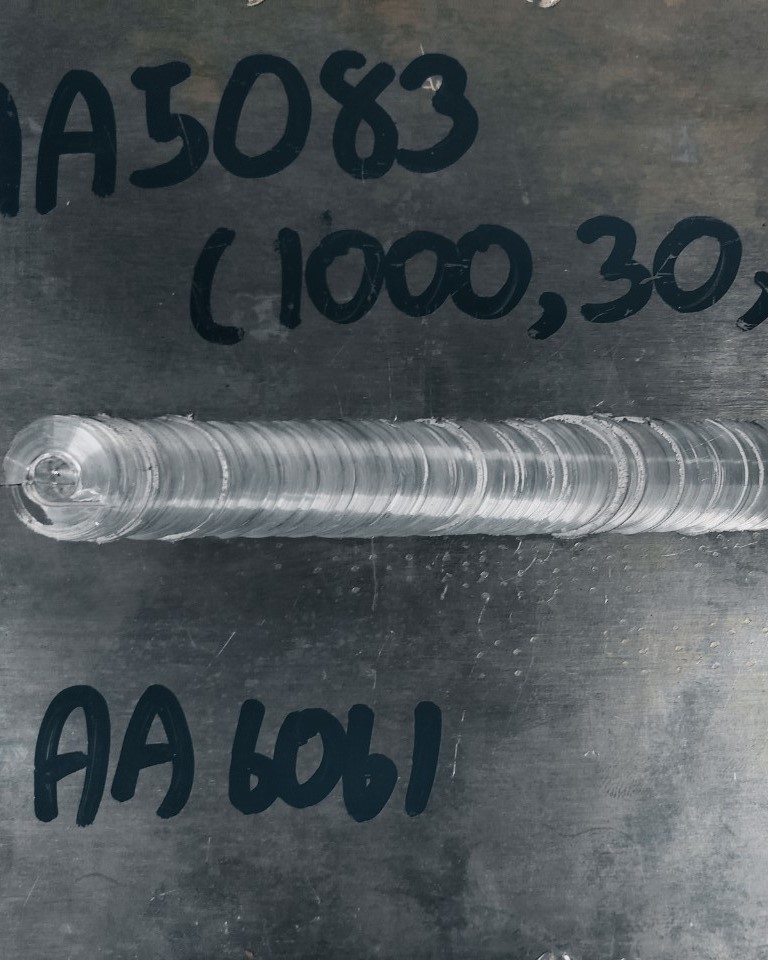 AA5083
(1000,30,
AA6061